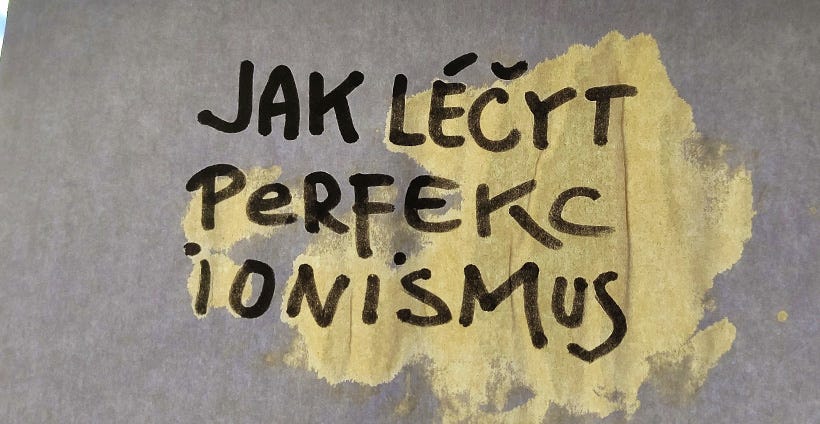 JAK LÉČYT
PeRFEKC
iONiSMUS